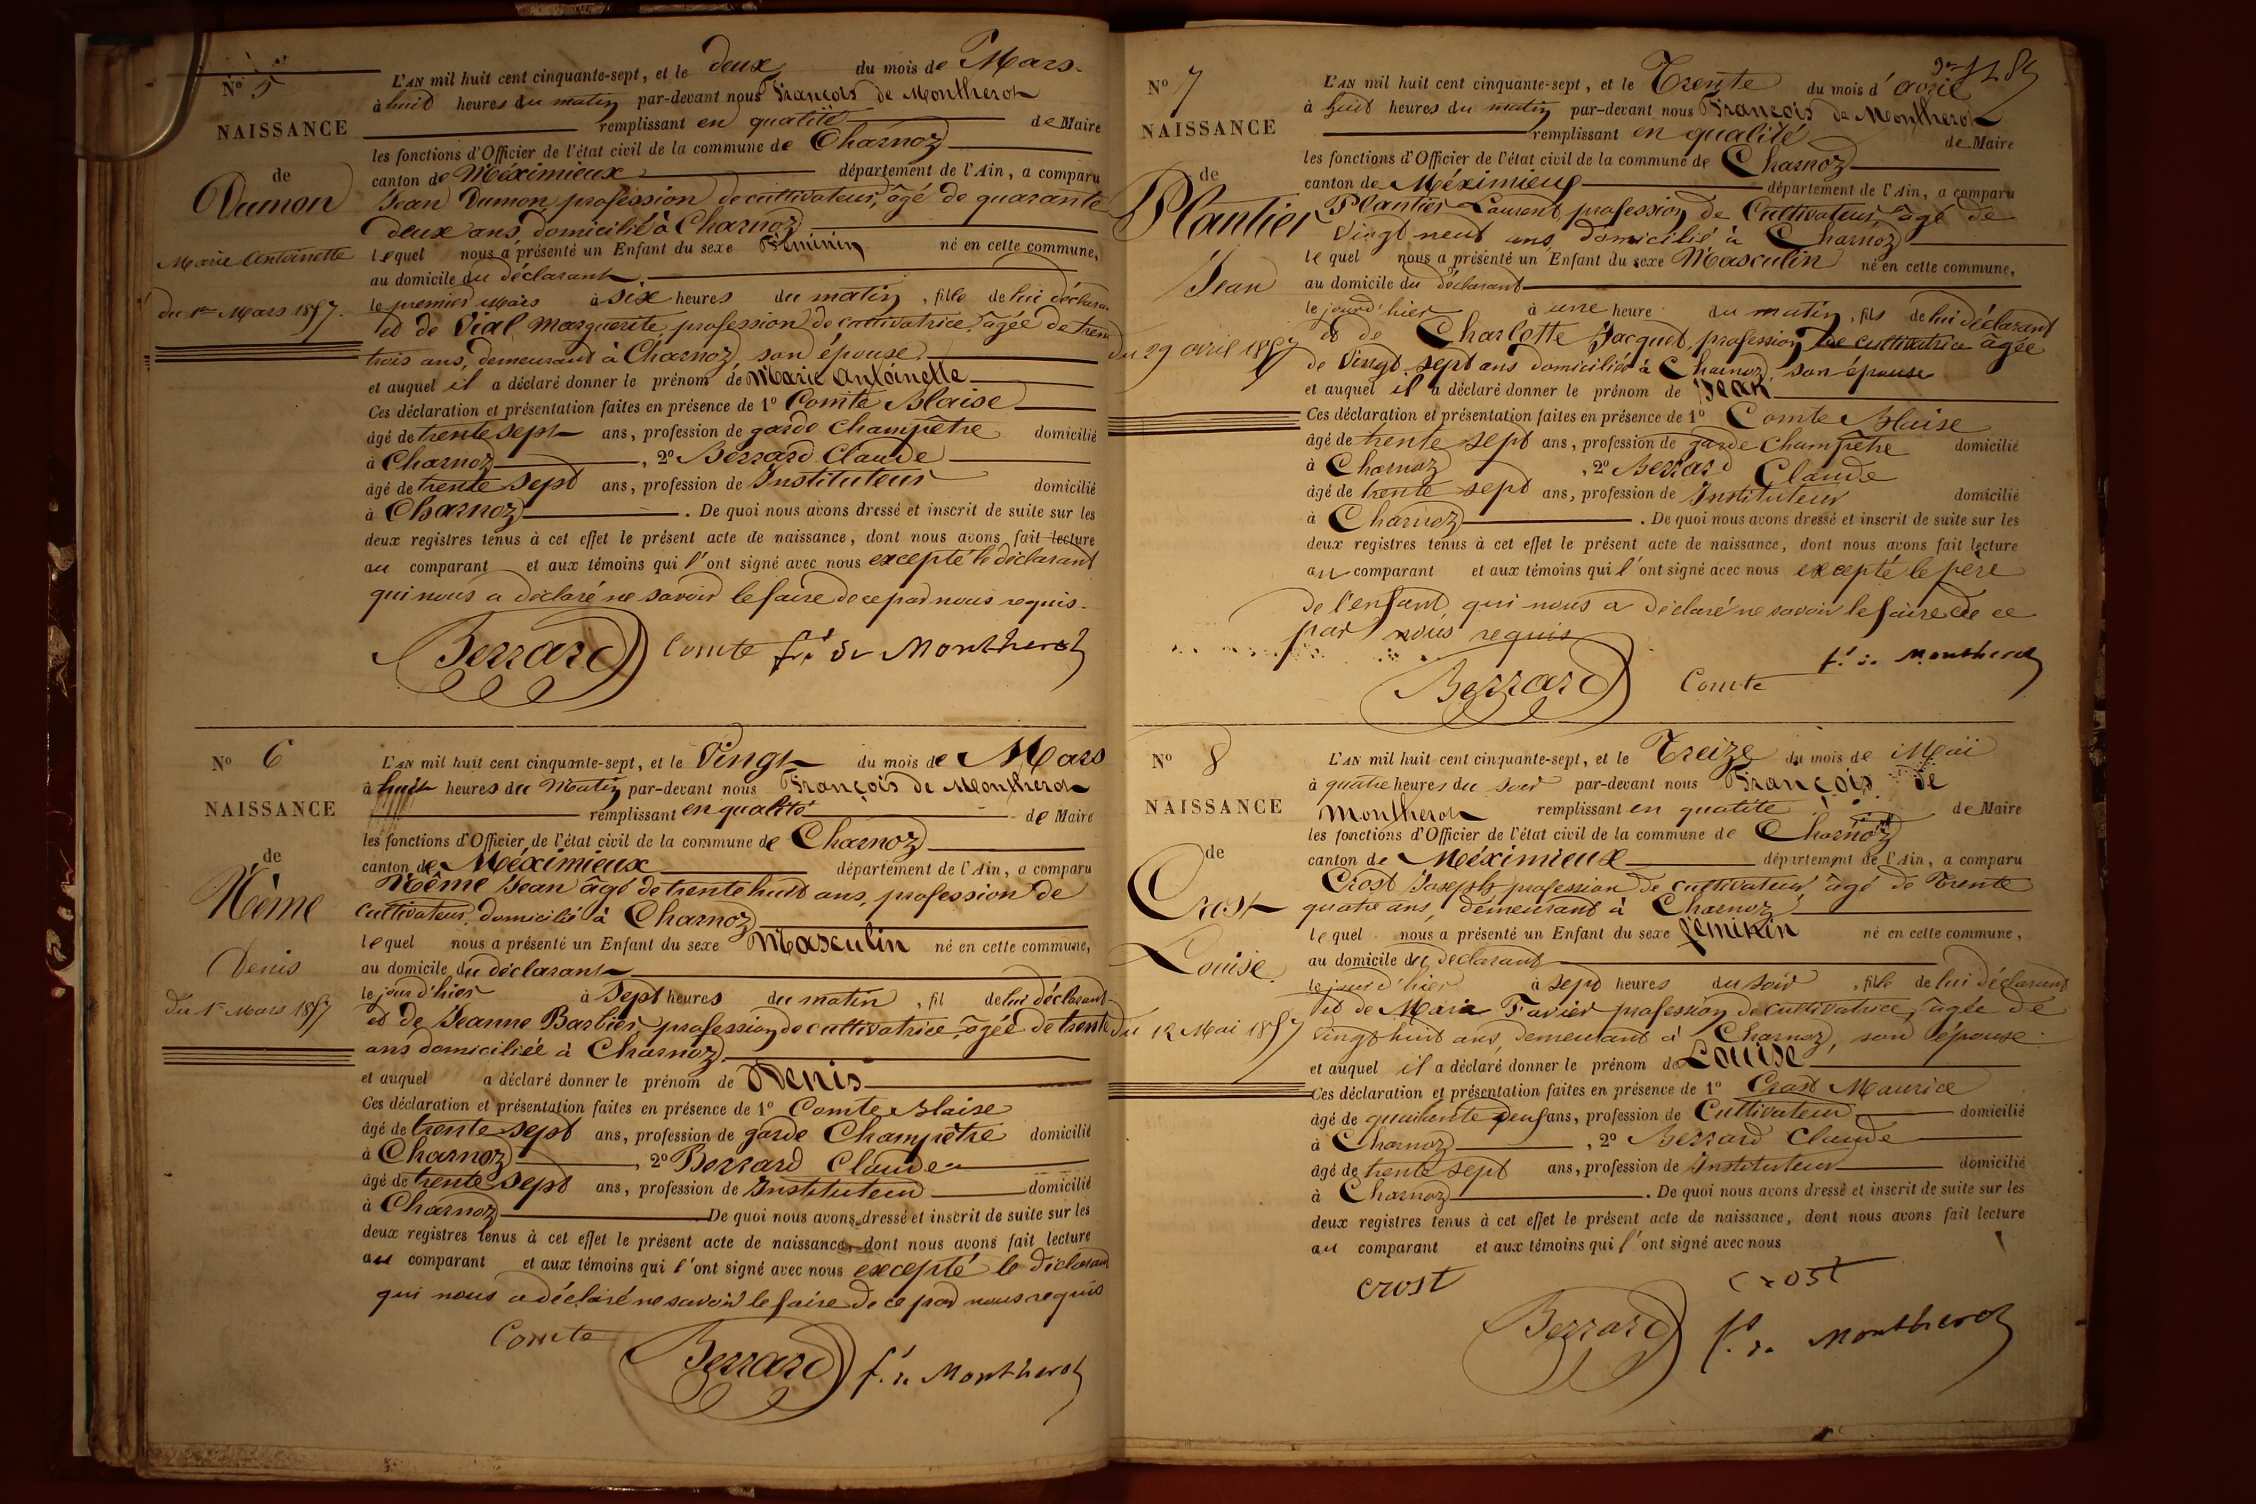 No 5
NAISSANCE
de
Dumon
Marie Antoinette
du 1er Mars 1857.
L'AN mil huit cent cinquante-sept, et le deux du mois de Mars
à huit heures du matin par-devant nous François de Montherot
remplissant en qualité de Maire
les fonctions d'Officier de l'état civil de la commune de Charnoz
canton de Méximieux département de l'Ain, a comparu
Jean Dumon profession de cultivateur, âgé de quarante
deux ans, domicilié à Charnoz
lequel nous a présenté un Enfant du sexe Féminin né en cette commune,
au domicile du déclarant
le premier Mars à six heures du matin, fille de lui déclarant
et de Vial Marguerite profession de cultivatrice, âgée de trente
trois ans, demeurant à Charnoz, son épouse.
et auquel il a déclaré donner le prénom de Marie Antoinette
Ces déclaration et présentation faites en présence de 1o Comte Blaise
âgé de trente sept ans, profession de garde Champêtre domicilié
à Charnoz, 2o Berrard Claude
âgé de trente sept ans, profession de Instituteur domicilié
à Charnoz. De quoi nous avons dressé et inscrit de suite sur les
deux registres tenus à cet effet le présent acte de naissance, dont nous avons fait lecture
au comparant et aux témoins qui l'ont signé avec nous excepté le déclarant
qui nous a déclaré ne savoir le faire de ce par nous requis.
Berrard Comte f. de Montherot
No 6
NAISSANCE
de
Nême
Denis
du 1er Mars 1857
L'AN mil huit cent cinquante-sept, et le Vingt du mois de Mars
à huit heures du Matin par-devant nous François de Montherot
remplissant en qualité de Maire
les fonctions d'Officier de l'état civil de la commune de Charnoz
canton de Méximieux département de l'Ain, a comparu
Nême Jean âgé de trente huit ans, profession de
cultivateur, domicilié à Charnoz
lequel nous a présenté un Enfant du sexe Masculin né en cette commune,
au domicile du déclarant
le jour d'hier à sept heures du matin, fil de lui déclarant
et de Jeanne Barbier, profession de cultivatrice, âgée de trente
ans domiciliée à Charnoz
et auquel a déclaré donner le prénom de Denis
Ces déclaration et présentation faites en présence de 1o Comte Blaise
âgé de trente sept ans, profession de garde Champêtre domicilié
à Charnoz, 2o Berrard Claude
âgé de trente sept ans, profession de Instituteur domicilié
à Charnoz De quoi nous avons dressé et inscrit de suite sur les
deux registres tenus à cet effet le présent acte de naissance, dont nous avons fait lecture
au comparant et aux témoins qui l'ont signé avec nous excepté le déclarant
qui nous a déclaré ne savoir le faire de ce par nous requis
Comte Berrard f. de Montherot
No 7
NAISSANCE
de
Plantier
Jean
du 29 avril 1857
L'AN mil huit cent cinquante-sept, et le Trente du mois d'avril
à huit heures du matin par-devant nous François de Montherot
remplissant en qualité de Maire
les fonctions d'Officier de l'état civil de la commune de Charnoz
canton de Méximieux département de l'Ain, a comparu
Plantier Laurent, profession de Cultivateur, âgé de
Vingt neuf ans, domicilié à Charnoz
lequel nous a présenté un Enfant du sexe Masculin né en cette commune,
au domicile du déclarant
le jour d'hier à une heure du matin, fils de lui déclarant
et de Charlotte Jacquet, profession de cultivatrice âgée
de Vingt sept ans domiciliée à Charnoz, son épouse
et auquel il a déclaré donner le prénom de Jean
Ces déclaration et présentation faites en présence de 1o Comte Blaise
âgé de trente sept ans, profession de garde Champêtre domicilié
à Charnoz, 2o Berrard Claude
âgé de trente sept ans, profession de Instituteur domicilié
à Charnoz. De quoi nous avons dressé et inscrit de suite sur les
deux registres tenus à cet effet le présent acte de naissance, dont nous avons fait lecture
au comparant et aux témoins qui l'ont signé avec nous excepté le père
de l'enfant, qui nous a déclaré ne savoir le faire de ce
par nous requis
Berrard Comte f. de Montherot
No 8
NAISSANCE
de
Crost
Louise
Du 12 Mai 1857
L'AN mil huit cent cinquante-sept, et le Treize du mois de Mai
à quatre heures du soir par-devant nous François de
Montherot remplissant en qualité de Maire
les fonctions d'Officier de l'état civil de la commune de Charnoz
canton de Méximieux département de l'Ain, a comparu
Crost Joseph profession de cultivateur, âgé de Trente
quatre ans, demeurant à Charnoz
lequel nous a présenté un Enfant du sexe féminin né en cette commune,
au domicile du déclarant
le jour d'hier à sept heures du soir, fille de lui déclarant
et de Maria Favier profession de cultivatrice, âgée de
Vingt huit ans, demeurant à Charnoz, son épouse.
et auquel il a déclaré donner le prénom de Louise
Ces déclaration et présentation faites en présence de 1o Crost Maurice
âgé de quarante neuf ans, profession de Cultivateur domicilié
à Charnoz, 2o Berrard Claude
âgé de trente sept ans, profession de Instituteur domicilié
à Charnoz. De quoi nous avons dressé et inscrit de suite sur les
deux registres tenus à cet effet le présent acte de naissance, dont nous avons fait lecture
au comparant et aux témoins qui l'ont signé avec nous
crost crost
Berrard f. de Montherot